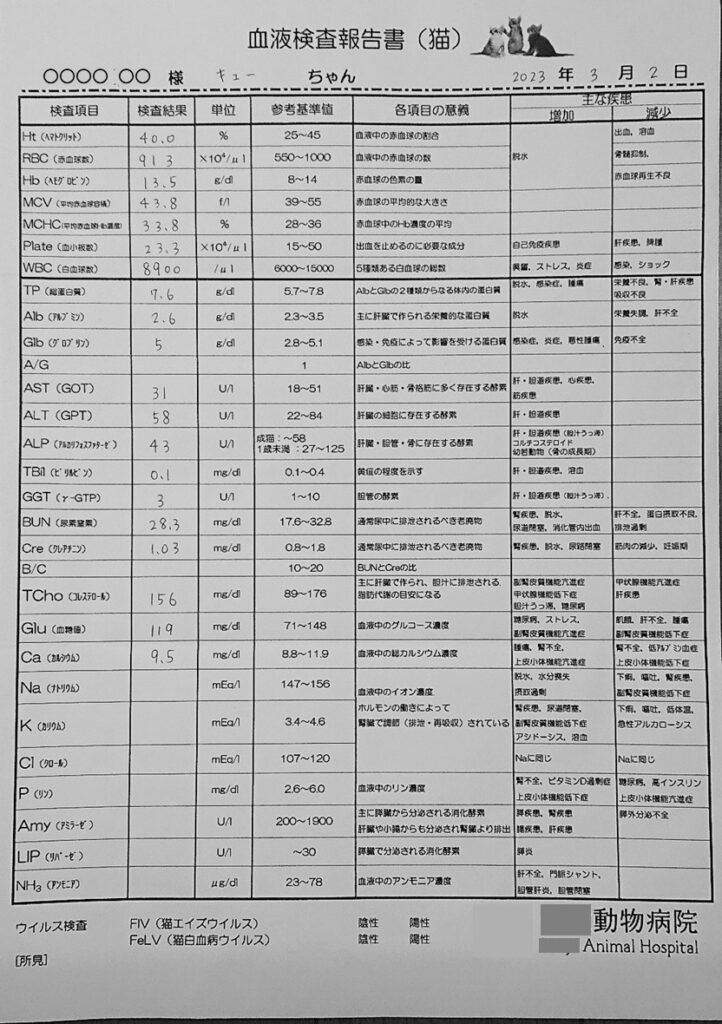 血液検査報告書（猫）
○○○○ ○○ 様 キュー ちゃん 2023 年 3 月 2 日
検査項目 検査結果 単位 参考基準値 各項目の意義 主な疾患
増加 減少
Ht（ﾍﾏﾄｸﾘｯﾄ） 40.0 % 25〜45 血液中の赤血球の割合 出血、溶血
RBC（赤血球数） 913 ×10⁴/μl 550〜1000 血液中の赤血球の数 脱水 骨髄抑制、
Hb（ﾍﾓｸﾞﾛﾋﾞﾝ） 13.5 g/dl 8〜14 赤血球の色素の量 赤血球再生不良
MCV（平均赤血球容積） 43.8 f/l 39〜55 赤血球の平均的な大きさ
MCHC（平均赤血球Hb濃度） 33.8 % 28〜36 赤血球中のHb濃度の平均
Plate（血小板数） 23.3 ×10⁴/μl 15〜50 出血を止めるのに必要な成分 自己免疫疾患 肝疾患、脾腫
WBC（白血球数） 8900 /μl 6000〜15000 5種類ある白血球の総数 興奮、ストレス、炎症 感染、ショック
TP（総蛋白質） 7.6 g/dl 5.7〜7.8 AlbとGlbの2種類からなる体内の蛋白質 脱水、感染症、腫瘍 栄養不良、腎・肝疾患
吸収不良
Alb（ｱﾙﾌﾞﾐﾝ） 2.6 g/dl 2.3〜3.5 主に肝臓で作られる栄養的な蛋白質 脱水 栄養失調、肝不全
Glb（ｸﾞﾛﾌﾞﾘﾝ） 5 g/dl 2.8〜5.1 感染・免疫によって影響を受ける蛋白質 感染症、炎症、悪性腫瘍、 免疫不全
A/G 1 AlbとGlbの比
AST（GOT） 31 U/l 18〜51 肝臓・心筋・骨格筋に多く存在する酵素 肝・胆道疾患、心疾患、
筋疾患
ALT（GPT） 58 U/l 22〜84 肝臓の細胞に存在する酵素 肝・胆道疾患
ALP（ｱﾙｶﾘﾌｫｽﾌｧﾀｰｾﾞ） 43 U/l 成猫：〜58 肝臓・胆管・骨に存在する酵素 肝・胆道疾患（胆汁うっ滞）
1歳未満：27〜125 コルチコステロイド
幼若動物（骨の成長期）
TBil（ﾋﾞﾘﾙﾋﾞﾝ） 0.1 mg/dl 0.1〜0.4 黄疸の程度を示す 肝・胆道疾患、溶血
GGT（γ-GTP） 3 U/l 1〜10 胆管の酵素 肝・胆道疾患（胆汁うっ滞）、
BUN（尿素窒素） 28.3 mg/dl 17.6〜32.8 通常尿中に排泄されるべき老廃物 腎疾患、脱水、 肝不全、蛋白摂取不良、
尿道閉塞、消化管内出血 排泄過剰
Cre（ｸﾚｱﾁﾆﾝ） 1.03 mg/dl 0.8〜1.8 通常尿中に排泄されるべき老廃物 腎疾患、脱水、尿路閉塞 筋肉の減少、妊娠期
B/C 10〜20 BUNとCreの比
TCho（ｺﾚｽﾃﾛｰﾙ） 156 mg/dl 89〜176 主に肝臓で作られ、胆汁に排泄される。 副腎皮質機能亢進症 甲状腺機能亢進症
脂肪代謝の目安になる 甲状腺機能低下症 肝疾患
胆汁うっ滞、糖尿病
Glu（血糖値） 119 mg/dl 71〜148 血液中のグルコース濃度 糖尿病、ストレス、 飢餓、肝不全、腫瘍
副腎皮質機能亢進症 副腎皮質機能低下症
Ca（ｶﾙｼｳﾑ） 9.5 mg/dl 8.8〜11.9 血液中の総カルシウム濃度 腫瘍、腎不全、 腎不全、低アルブミン血症
上皮小体機能亢進症 上皮小体機能低下症
Na（ﾅﾄﾘｳﾑ） mEq/l 147〜156 血液中のイオン濃度 脱水、水分喪失 下痢、嘔吐、腎疾患、
摂取過剰 副腎皮質機能低下症
K（ｶﾘｳﾑ） mEq/l 3.4〜4.6 ホルモンの働きによって 腎疾患、尿道閉塞、 下痢、嘔吐、低体温、
腎臓で調節（排泄・再吸収）されている 副腎皮質機能低下症 急性アルカローシス
アシドーシス、溶血
Cl（ｸﾛｰﾙ） mEq/l 107〜120 Naに同じ Naに同じ
P（ﾘﾝ） mg/dl 2.6〜6.0 血液中のリン濃度 腎不全、ビタミンD過剰症 糖尿病、高インスリン
上皮小体機能低下症 上皮小体機能亢進症
Amy（ｱﾐﾗｰｾﾞ） U/l 200〜1900 主に膵臓から分泌される消化酵素 膵疾患、腎疾患 膵外分泌不全
肝臓や小腸からも分泌され腎臓より排出 腸疾患、肝疾患
LIP（ﾘﾊﾟｰｾﾞ） U/l 〜30 膵臓で分泌される消化酵素 膵炎
NH₃（ｱﾝﾓﾆｱ） μg/dl 23〜78 血液中のアンモニア濃度 肝不全、門脈シャント、
胆管肝炎、胆管閉塞
ウイルス検査 FIV（猫エイズウイルス） 陰性 陽性
FeLV（猫白血病ウイルス） 陰性 陽性
動物病院
Animal Hospital
[所見]